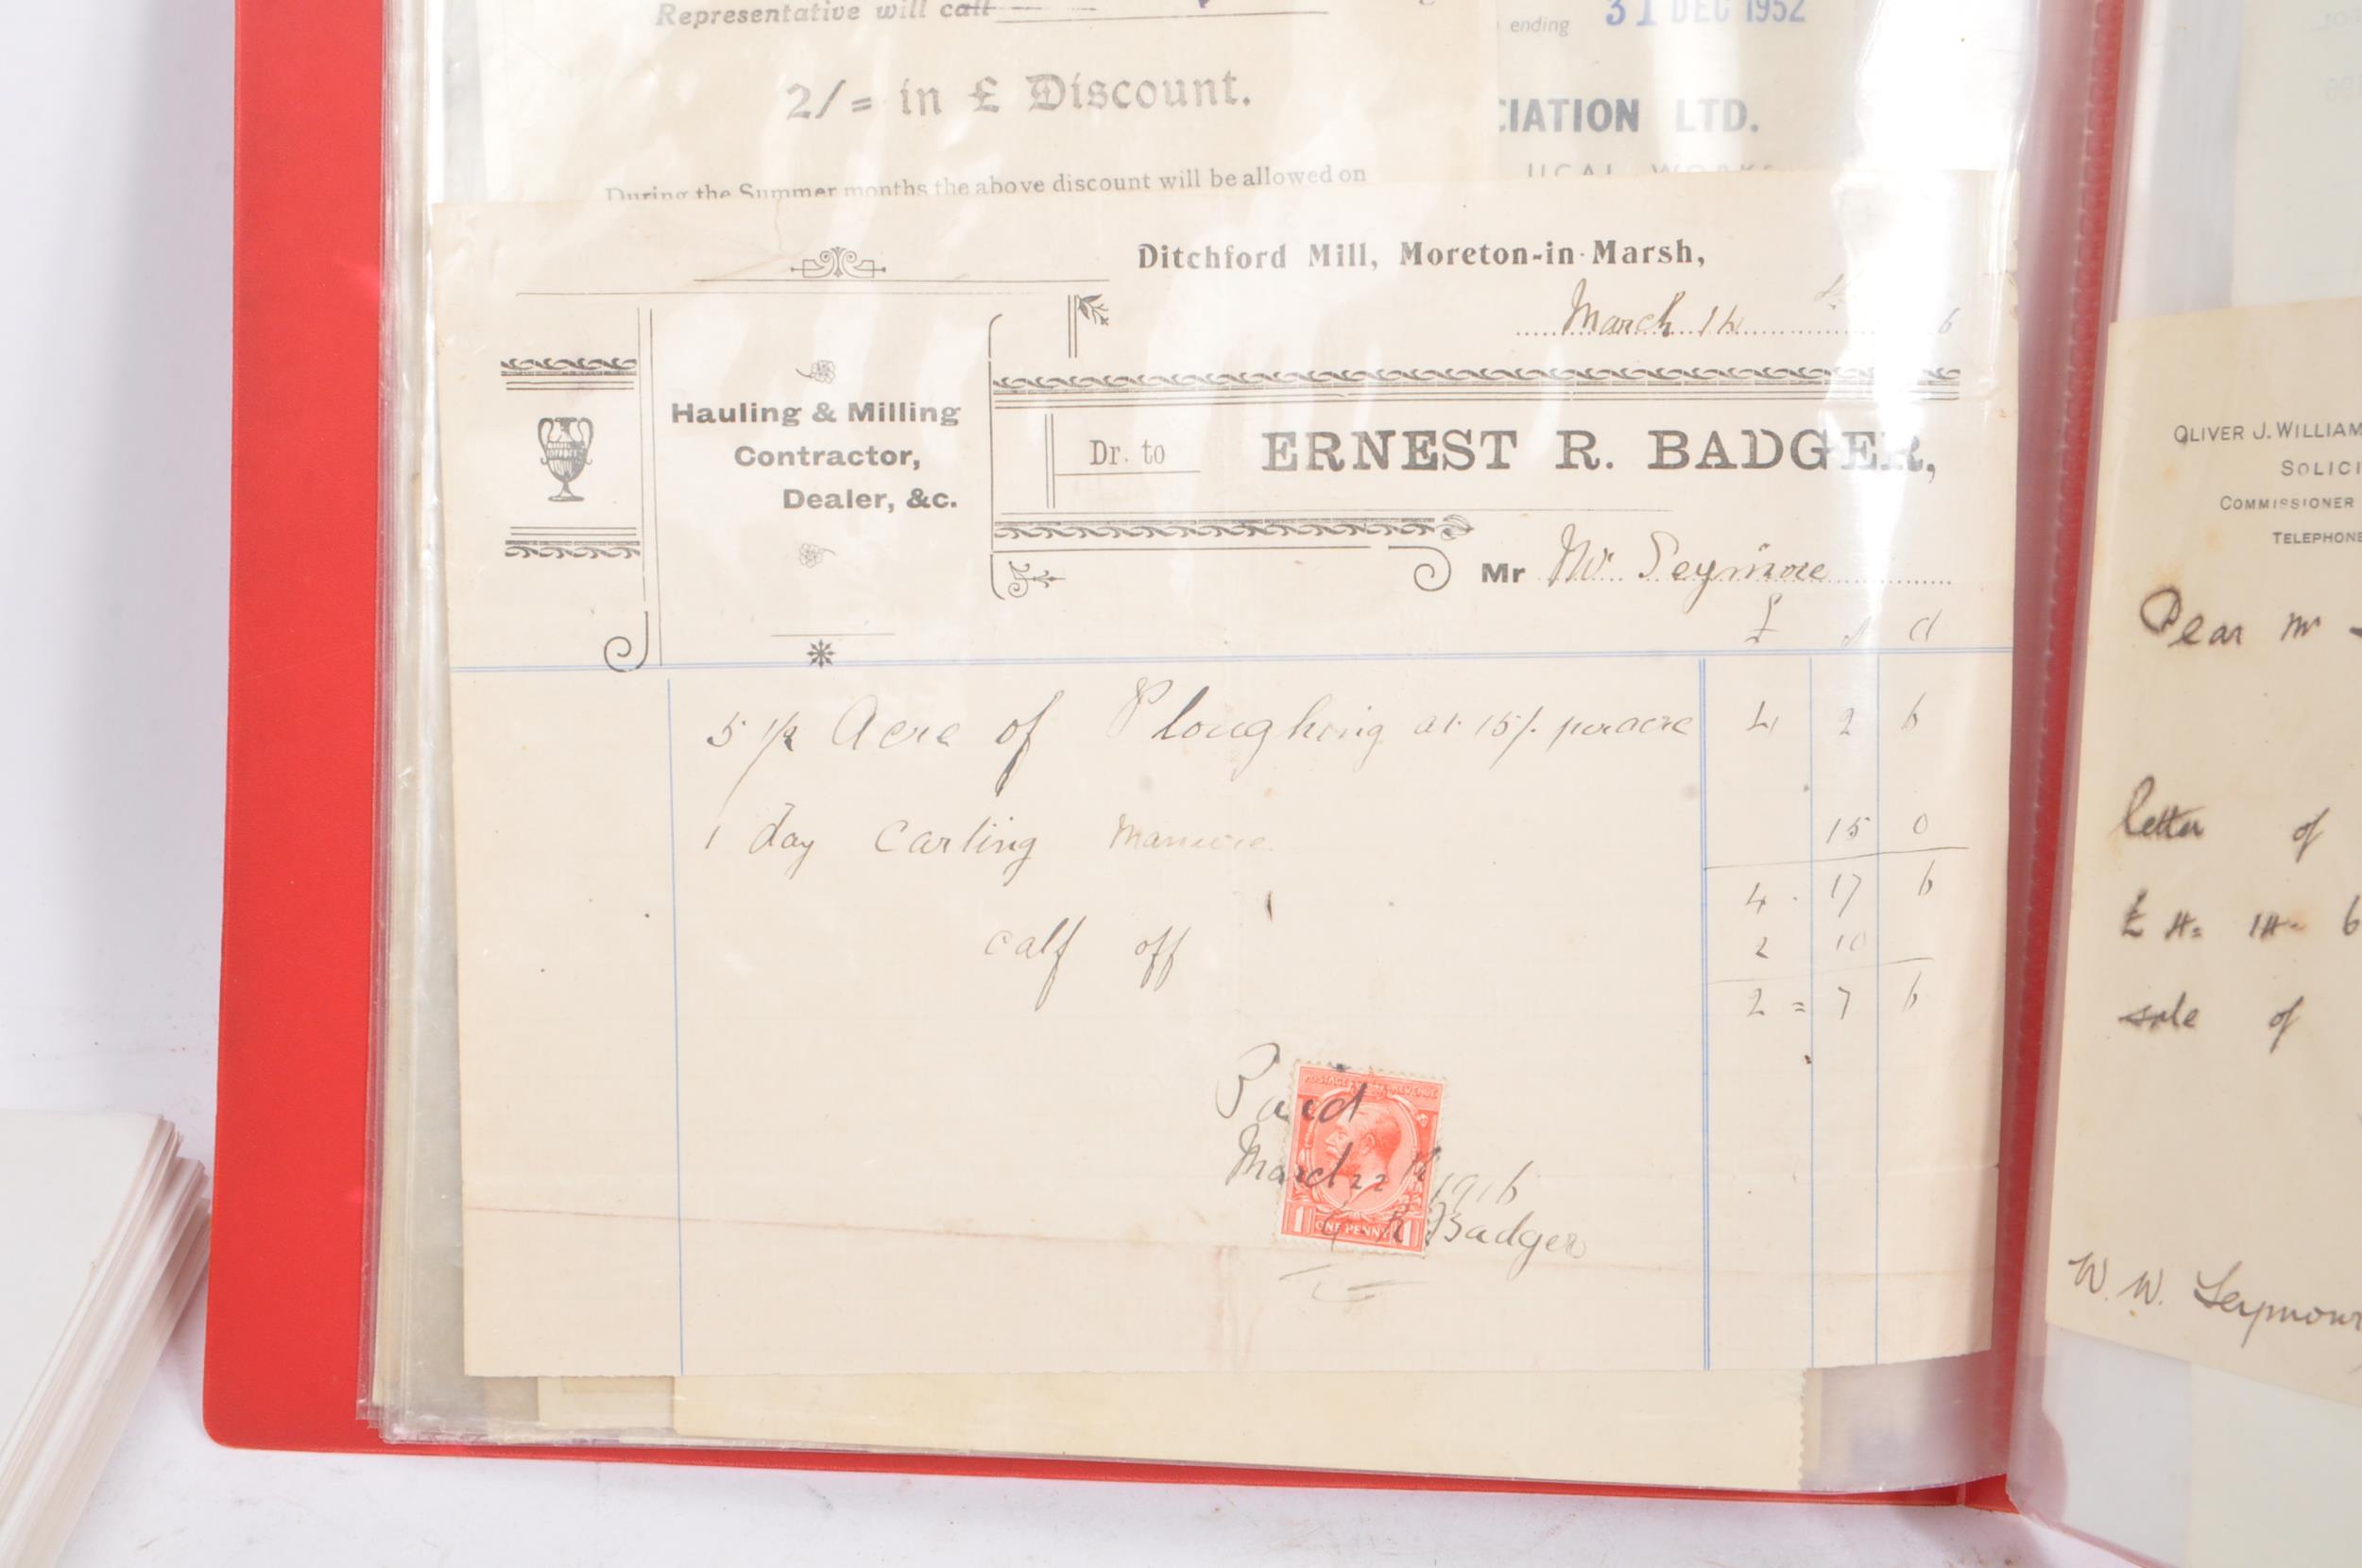 Representative will call
2/= in £ Discount.
During the Summer months the above discount will be allowed on
ending 31 DEC 1952
CIATION LTD.
Ditchford Mill, Moreton-in-Marsh,
March 14 6
Hauling & Milling
Contractor,
Dealer, &c.
Dr. to ERNEST R. BADGER,
Mr W. Seymore
£ s d
5 1/2 Acre of Ploughing at 15/- per acre 4 2 6
1 day Carting Manure 15 0
4 . 17 6
calf off 2 10
2 = 7 6
Paid
March 22 1916
E R Badger
POSTAGE REVENUE
1 ONE PENNY 1
OLIVER J. WILLIAM
SOLICI
COMMISSIONER
TELEPHONE
Dear Mr
letter of
£ 4= 14- 6
sale of
W. W. Seymour